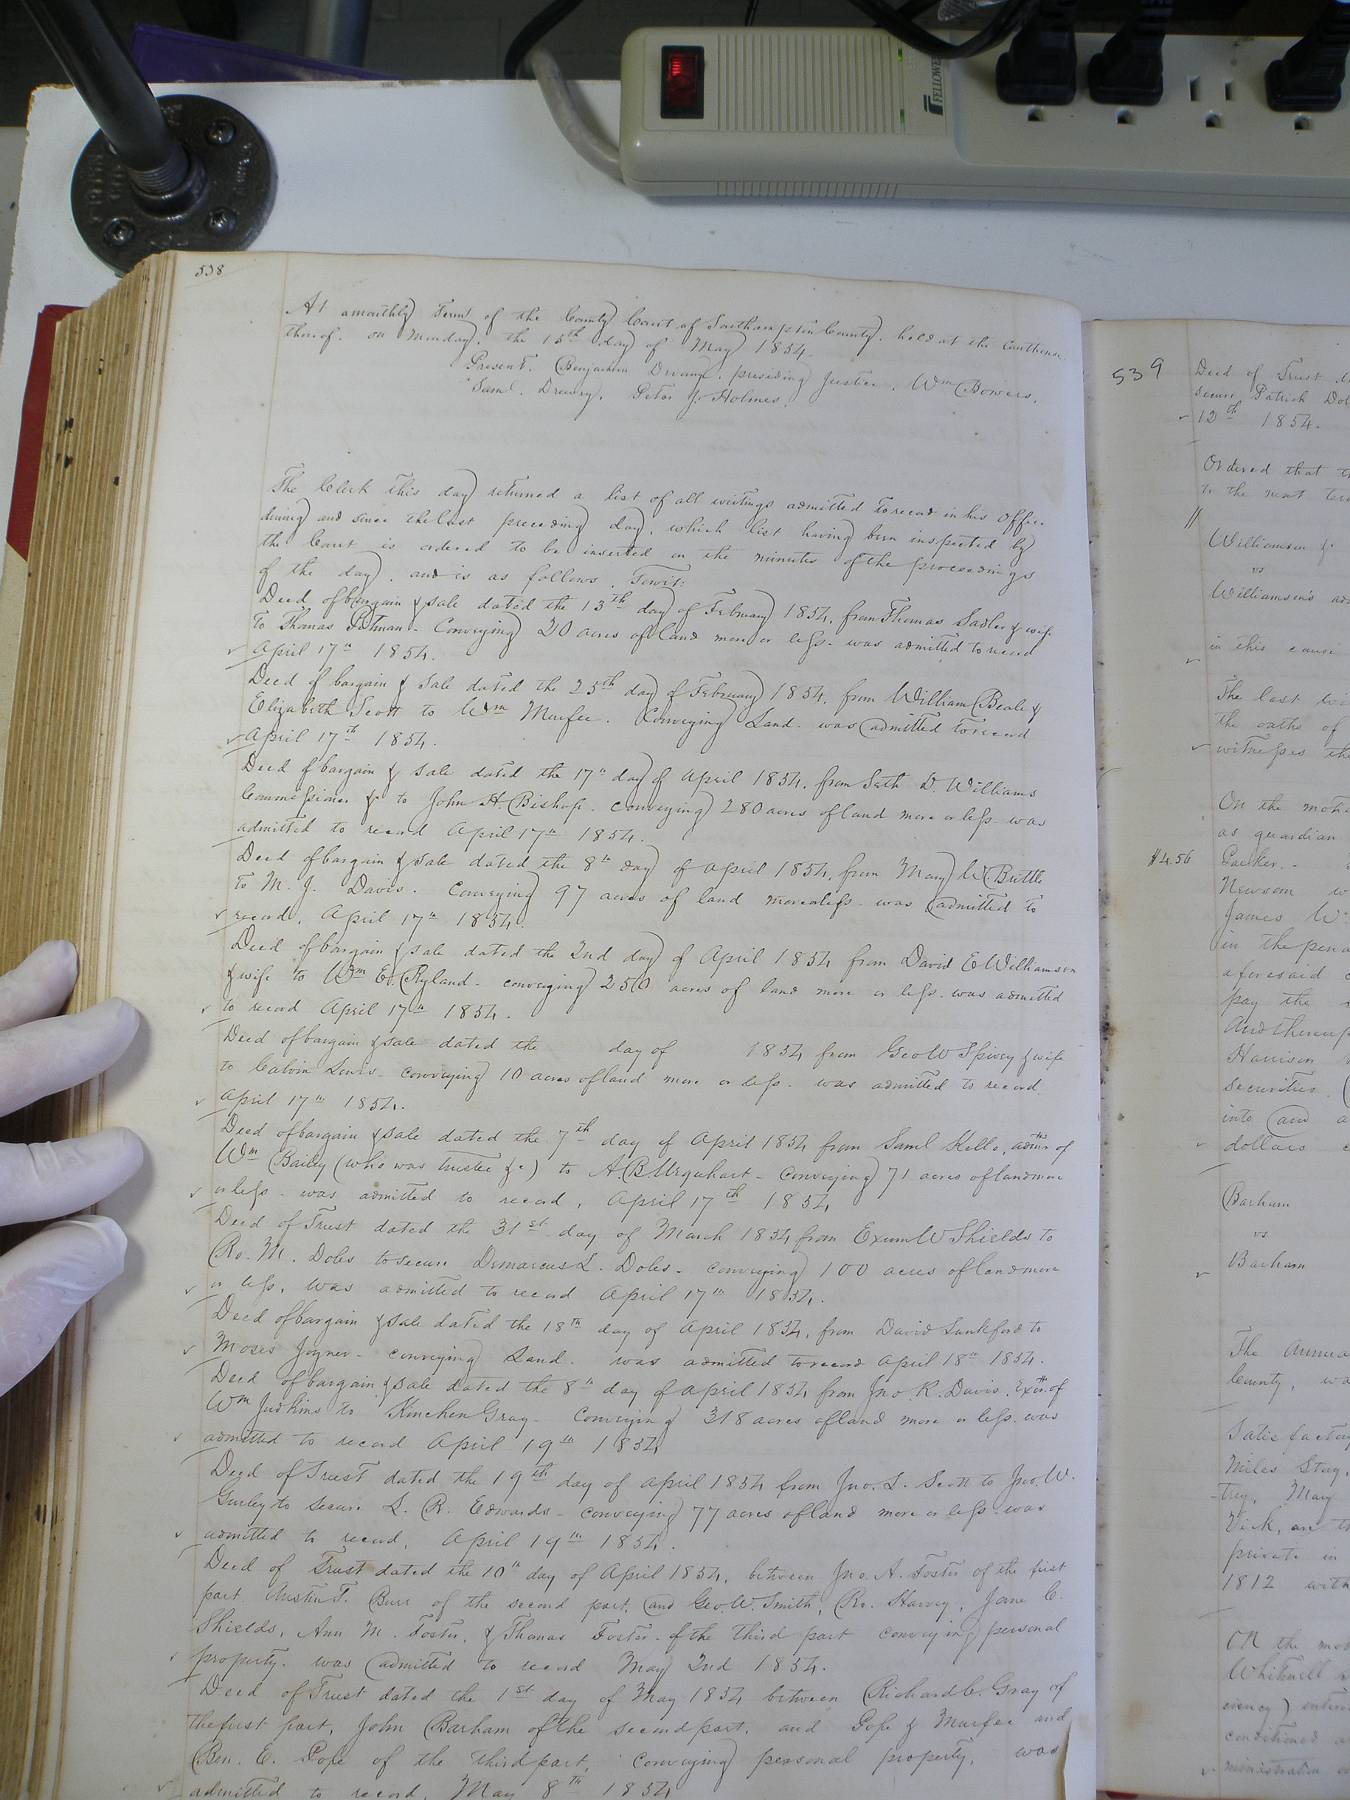 FELLOWE
538
At a monthly Term of the County Court of Southampton County, held at the Courthouse
thereof, on Monday, the 15th day of May 1854.
Present, Benjamin Devany, presiding Justice, Wm Bowers,
Saml. Drewry, Peter J. Holmes.
The Clerk this day returned a list of all writings admitted to record in his Office
during and since the last preceding day, which list having been inspected by
the Court is ordered to be inserted in the minutes of the proceedings
of the day, and is as follows, Towit:
Deed of bargain & sale dated the 13th day of February 1854, from Thomas Sadler & wife
to Thomas Pitman - Conveying 20 acres of land more or less - was admitted to record
April 17th 1854.
Deed of bargain & sale dated the 25th day of February 1854, from William Beale &
Elizabeth Scott to Wm Murfee. Conveying Land. was admitted to record
April 17th 1854.
Deed of bargain & sale dated the 17th day of April 1854, from Seth D. Williams
Commissioner &c to John H. Bishop. conveying 280 acres of land more or less. was
admitted to record April 17th 1854.
Deed of bargain & sale dated the 8th day of April 1854, from Mary W Buttle
to M. J. Davis. Conveying 97 acres of land more or less was admitted to
record, April 17th 1854.
Deed of bargain & sale dated the 2nd day of April 1854 from David E Williamson
& wife to Wm E. Ryland - conveying 250 acres of land more or less. was admitted
to record April 17th 1854.
Deed of bargain & sale dated the day of 1854 from Geo W Spivey & wife
to Calvin Lewis - conveying 10 acres of land more or less - was admitted to record.
April 17th 1854.
Deed of bargain & sale dated the 7th day of April 1854 from Saml Kello, admr of
Wm Bailey (who was trustee &c) to A. B. Urquhart - conveying 71 acres of land more
or less - was admitted to record, April 17th 1854
Deed of Trust dated the 31st day of March 1854 from Exum W Shields to
Ro. M. Doles to secure Demarcus L. Doles - conveying 100 acres of land more
or less, was admitted to record April 17th 1854.
Deed of bargain & sale dated the 18th day of April 1854, from David Lankford to
Moses Joyner - conveying Land. was admitted to record April 18th 1854.
Deed of bargain & sale dated the 8th day of April 1854 from Jno. R. Davis, Exor. of
Wm Judkins to Kinchen Gray - Conveying 318 acres of land more or less. was
admitted to record April 19th 1854
Deed of Trust dated the 19th day of April 1854 from Jno. L. Scott to Jno. W.
Gurley to secure L. R. Edwards - conveying 77 acres of land more or less was
admitted to record, April 19th 1854.
Deed of Trust dated the 10th day of April 1854, between Jno. A. Foster of the first
part Austin F. Burr of the second part, and Geo. W. Smith, Ro. Harvey, Jane C.
Shields, Ann M. Foster, & Thomas Foster - of the third part conveying personal
property. was admitted to record May 2nd 1854.
Deed of Trust dated the 1st day of May 1854 between Richard C. Gray of
the first part, John Barham of the second part, and Pope & Murfee and
Ben. E. Pope of the third part, conveying personal property, was
admitted to record, May 8th 1854
539
Deed of Trust
secure Patrick Dol
12th 1854.
Ordered that
to the next ter
Williamson &
vs
Williamson's ad
in this cause
The last wi
the oaths of
witnesses th
On the moti
as guardian
$4.56
Newsom w
James W
in the pena
aforesaid
pay the
And thereup
Harrison
securities
into and a
dollars
Barham
vs
Barham
The annua
County, wa
Satisfactory
Miles Stay,
May
Vick, are t
private in
1812 with
On the mot
Whitnell
conditioned
ministration